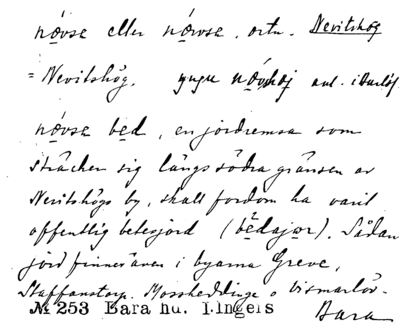 növse eller nöwse, ortn. Nevitshög
= Nevitshög. yngre növhøj ant. i Burlöf
növse bed, en jordremsa som
sträcker sig längs södra gränsen av
Nevitshögs by, skall fordom ha varit
offentlig betesjord (bēdajor). Sådan
jord finnes även i byarna Greve,
Staffanstorp, Mossheddinge o Vismarlöv.
№ 253 Bara hd. I.Ingers Bara